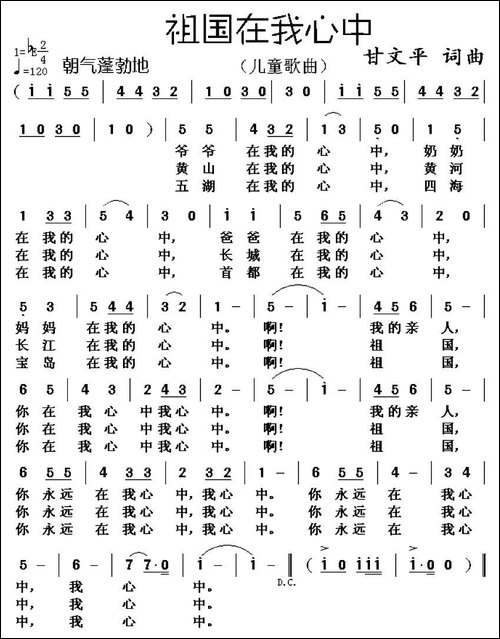 祖国在我心中
1=♭E 2/4
♩=120 朝气蓬勃地 （儿童歌曲） 甘文平 词曲
( i i 5 5 | 4 4 3 2 | 1 0 3 0 | 3 0 | i i 5 5 | 4 4 3 2 |
1 0 3 0 | 1 0 ) | 5 5 | 4 4 3 2 | 1 3 | 1 5 |
爷爷 在我的 心 中, 奶奶
黄山 在我的 心 中, 黄河
五湖 在我的 心 中, 四海
1 3 3 | 5 4 | 3 0 | i i | 5 6 5 | 4 3 | 2 0 |
在我的 心 中, 爸爸 在我的 心 中,
在我的 心 中, 长城 在我的 心 中,
在我的 心 中, 首都 在我的 心 中,
5 3 | 5 4 4 | 3 2 | 1 - | 5 - | i - | 4 5 6 | 5 - |
妈妈 在我的 心 中。 啊! 我的亲 人,
长江 在我的 心 中。 啊! 祖 国,
宝岛 在我的 心 中。 啊! 祖 国,
6 5 | 4 3 | 2 4 3 | 2 - | 5 - | i - | 4 5 6 | 5 - |
你在 我心 中我心 中。 啊! 我的亲 人,
你在 我心 中我心 中。 啊! 祖 国,
你在 我心 中我心 中。 啊! 祖 国,
6 5 5 | 4 3 | 2 3 2 | 1 - | 6 5 5 | 4 5 6 |
你永远 在我心 中,我心 中。 你永远 在 我心
你永远 在我心 中,我心 中。 你永远 在 我心
你永远 在我心 中,我心 中。 你永远 在 我心
5 - | 6 - | 7 7·0 | i - | i - ‖ ( i 0 i i i | i·0 i 0 ) ‖
D.C.
中, 我 心 中。
中, 我 心 中。
中, 我 心 中。